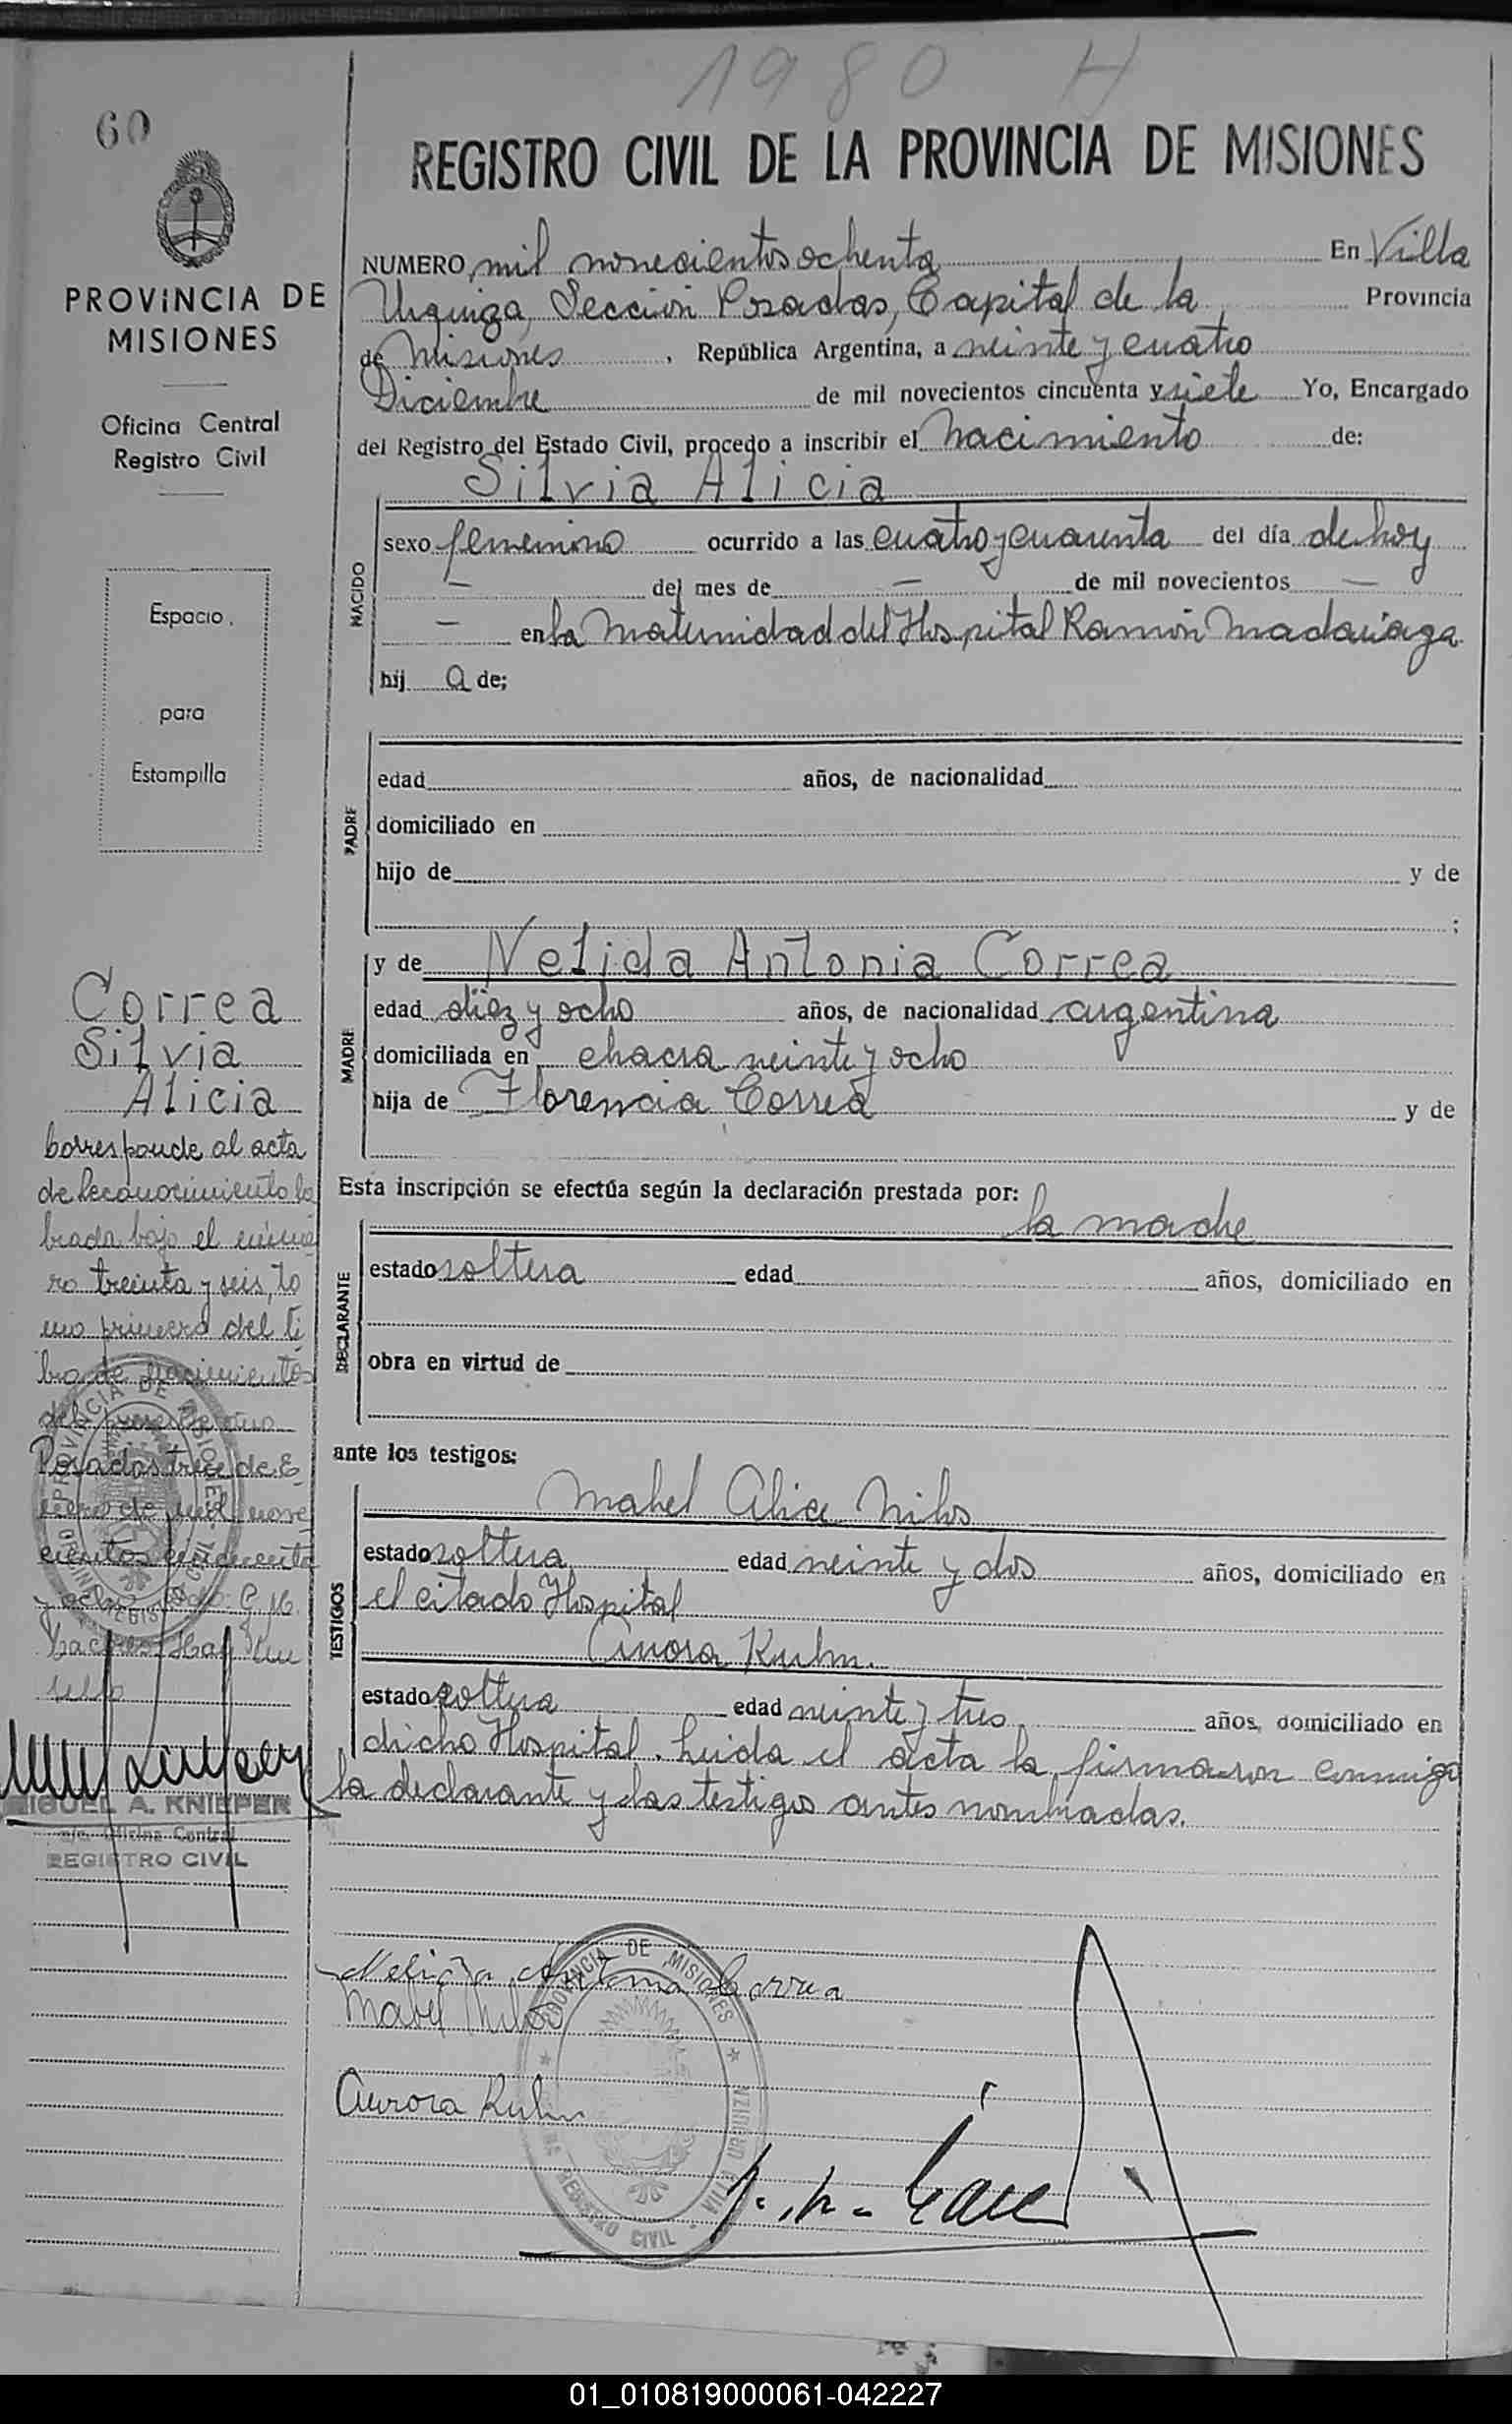 1980 H
60
REGISTRO CIVIL DE LA PROVINCIA DE MISIONES
PROVINCIA DE
MISIONES
Oficina Central
Registro Civil
Espacio
para
Estampilla
NUMERO mil novecientos ochenta En Villa
Urquiza, Sección Posadas, Capital de la Provincia
de Misiones, República Argentina, a veinte y cuatro
Diciembre de mil novecientos cincuenta y siete Yo, Encargado
del Registro del Estado Civil, procedo a inscribir el nacimiento de:
Silvia Alicia
NACIDO
sexo femenino ocurrido a las cuatro y cuarenta del día de hoy
— del mes de — de mil novecientos —
— en la Maternidad del Hospital Ramón Madariaga
hij a de;
PADRE
edad años, de nacionalidad
domiciliado en
hijo de y de
;
MADRE
y de Nelida Antonia Correa
edad diez y ocho años, de nacionalidad argentina
domiciliada en chacra veinte y ocho
hija de Florencia Correa y de
Esta inscripción se efectúa según la declaración prestada por:
la madre
DECLARANTE
estado soltera edad años, domiciliado en
obra en virtud de
ante los testigos:
TESTIGOS
Mabel Alice Nilos
estado soltera edad veinte y dos años, domiciliado en
el citado Hospital
Aurora Kuhn.
estado soltera edad veinte y tres años, domiciliado en
dicho Hospital. Leida el acta la firmaron conmigo
la declarante y las testigos antes nombradas.
Correa
Silvia
Alicia
Corresponde al acta
de Reconocimiento la
brada bajo el núme
ro treinta y seis, to
mo primero del li
bro de nacimientos
del presente año
Posadas trece de E
nero de mil nove
cientos cincuenta
y ocho Fdo: G. M.
Hay un
sello
MIGUEL A. KNIEPER
a/c. Oficina Central
REGISTRO CIVIL
PROVINCIA DE MISIONES
Nelida Antonia Correa
Mabel Nilos
Aurora Kuhn
PROVINCIA DE MISIONES
REGISTRO CIVIL
VILLA URQUIZA
01_010819000061-042227